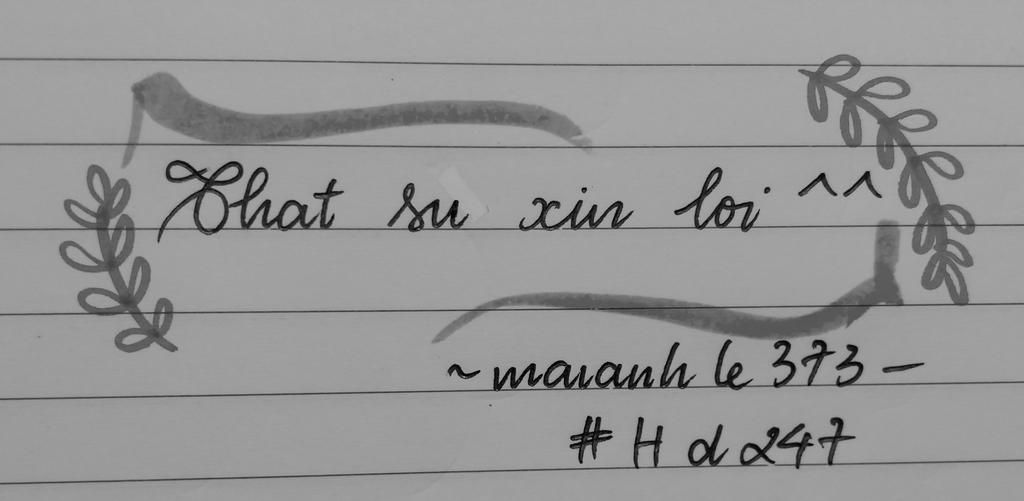 That su xin loi ^^
~maianh le 373 –
# H d 247